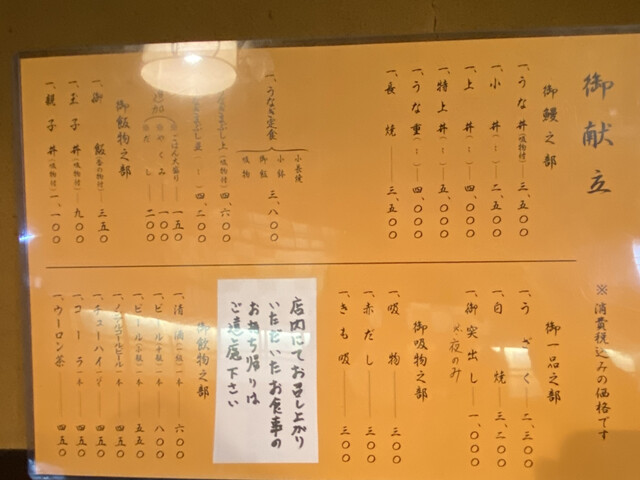 御献立
※消費税込みの価格です
御鰻之部
一、うな丼(吸物付)――三、五〇〇
一、小丼(〃)――二、五〇〇
一、上丼(〃)――四、〇〇〇
一、特上丼(〃)――五、〇〇〇
一、うな重(〃)――四、〇〇〇
一、長焼――三、五〇〇
一、うなぎ定食
小長焼
小鉢
御飯
吸物
三、八〇〇
まぶし上(吸物付)四、六〇〇
まぶし並(〃)――四、二〇〇
追加
ごはん大盛り――一五〇
やくみ――一〇〇
だし――二〇〇
御飯物之部
一、御飯(香の物付)――三五〇
一、玉子丼(吸物付)――九〇〇
一、親子丼(吸物付)――一、一〇〇
御一品之部
一、うざく――二、三〇〇
一、白焼――三、二〇〇
一、御突出し――一、〇〇〇
※夜のみ
御吸物之部
一、吸物――三〇〇
一、赤だし――三〇〇
一、きも吸――三〇〇
店内にてお召し上がり
いただいたお食事の
お持ち帰りは
ご遠慮下さい
御飲物之部
一、清酒(一級)一本――六〇〇
一、ビール(中瓶)一本――八〇〇
一、ビール(小瓶)一本――五五〇
一、ノンアルコールビール一本――四五〇
一、チューハイ一本――四五〇
一、コーラ一本――四五〇
一、ウーロン茶――四五〇